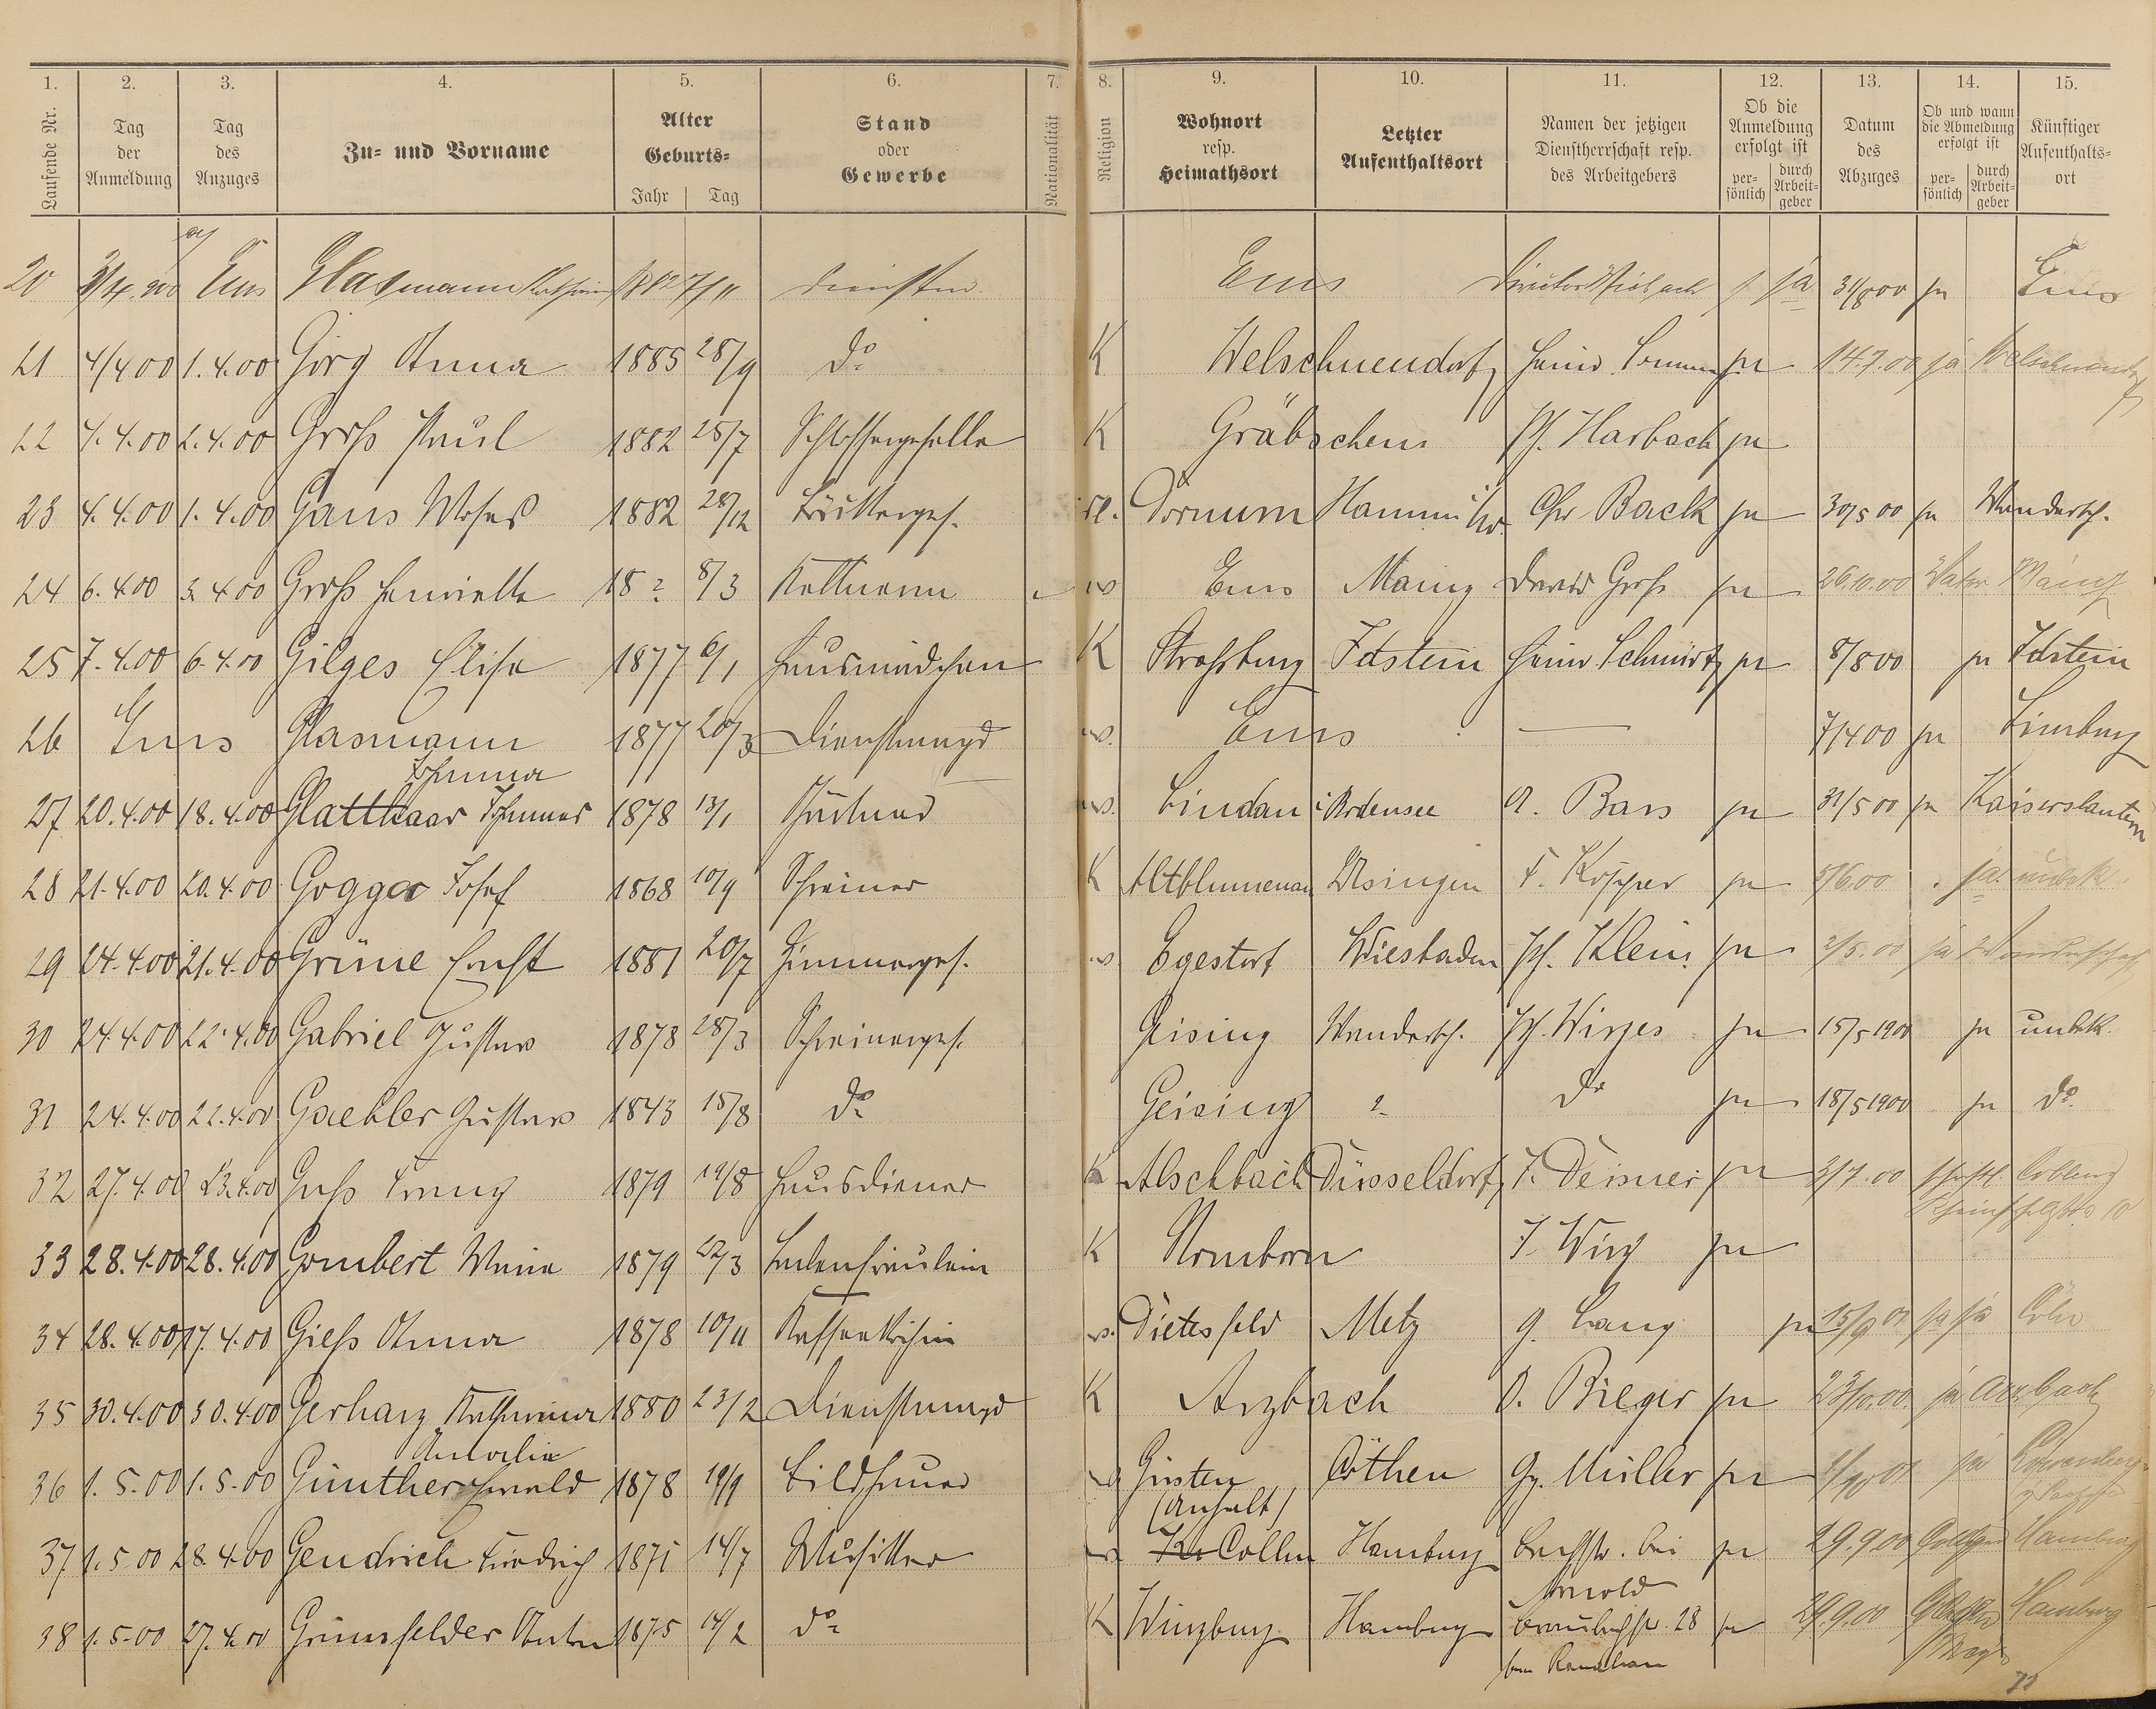 1. 2. 3. 4. 5. 6. 7. 8. 9. 10. 11. 12. 13. 14. 15.
Laufende Nr. Tag der Anmeldung Tag des Anzuges Zu- und Vorname Alter Geburts- Jahr Tag Stand oder Gewerbe Nationalität Religion Wohnort resp. Heimathsort Letzter Aufenthaltsort Namen der jetzigen Dienstherrschaft resp. des Arbeitgebers Ob die Anmeldung erfolgt ist persönlich durch Arbeitgeber Datum des Abzuges Ob und wann die Abmeldung erfolgt ist persönlich durch Arbeitgeber Künftiger Aufenthaltsort
20 Ems Glasmann 7/11 Ems ja 31/8 00 ja Ems
21 4/4 00 1.4.00 Görg Anna 1885 28/9 do K Welschneudorf ja 14.7.00 ja
22 4.4.00 2.4.00 Groß Paul 1882 25/7 Schlossergeselle K Gräbschen Ph. Harbach ja
23 4.4.00 1.4.00 Gans Moses 1882 28/12 Dornum Hamm Chr Back ja 30/5 00 ja Wandersch.
24 6.4.00 3.4.00 Groß Henriette 18 8/3 Ems Mainz David Groß ja 26.10.00 Mainz
25 7.4.00 6.4.00 Gilges Elise 1877 6/1 Hausmädchen K Straßburg Idstein Heinr Schmidt ja 8/8 00 ja Idstein
26 Ems Glasmann Johanna 1877 20/3 Dienstmagd Ems 7/4 00 ja Limburg
27 20.4.00 18.4.00 Glatthaar Johannes 1878 13/1 Gärtner Lindau i Bodensee A. Bars ja 31/5 00 ja Kaiserslautern
28 21.4.00 20.4.00 Gogga Josef 1868 10/9 Schreiner K Altblumenau Usingen F. Kopper ja 5/6.00 ja unbek
29 24.4.00 21.4.00 Grüne Ernst 1881 20/7 Zimmerges. Egestorf Wiesbaden Ph. Klein ja 2/5.00 ja Wanderschaft
30 24.4.00 22.4.00 Gabriel Gustav 1878 28/3 Schreinerges. Geising Wandersch. Ph. Wirges ja 15/5 1900 ja unbek.
31 24.4.00 22.4.00 Gaebler Gustav 1843 15/8 do Geising do ja 18/5 1900 ja do
32 27.4.00 23.4.00 Guß Franz 1879 19/8 Hausdiener K Alschbach Düsseldorf J. Deisner ja 3/7.00 Coblenz
33 28.4.00 28.4.00 Gombert Maria 1879 22/3 Ladenfräulein K Nomborn J. Wirz ja
34 28.4.00 17.4.00 Gieß Anna 1878 10/11 Kaffeeköchin Dietesfeld Metz G. Lang ja 15/9 00 ja ja Cöln
35 30.4.00 30.4.00 Gerharz Katharina 1880 23/2 Dienstmagd K Arzbach O. Bieger ja 23/10.00. ja Arzbach
36 1.5.00 1.5.00 Günther Ewald 1878 19/9 Bildhauer Güsten (Anhalt) Cöthen Gg. Müller ja ja
37 1.5.00 28.4.00 Gendrich Friedrich 1871 14/7 Musiker Hamburg bei Arnold ja 29.9.00 Hamburg
38 1.5.00 27.4.00 Grünsfelder Anton 1875 14/2 do K Würzburg Hamburg 28 ja 29.9.00 Hamburg